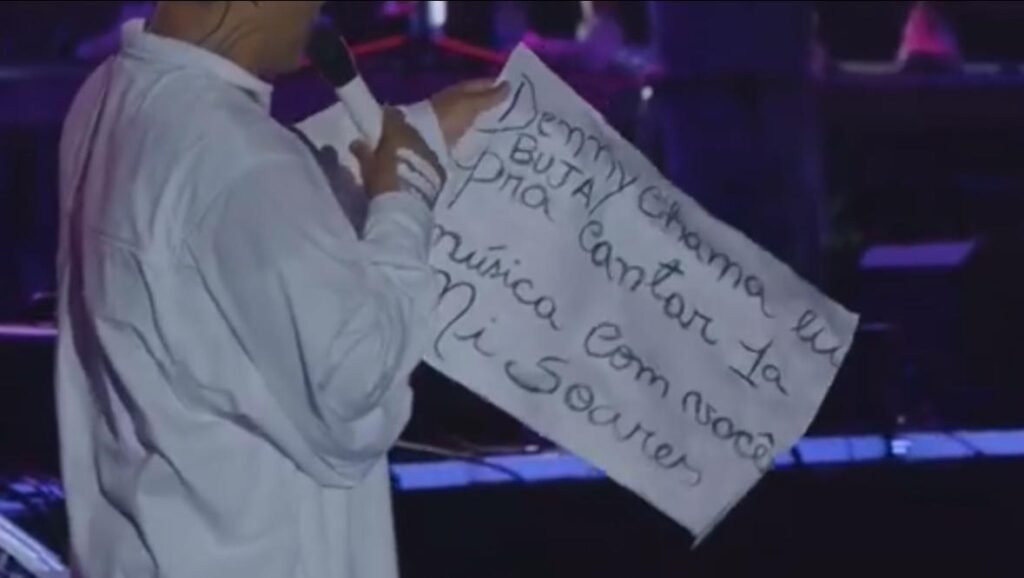 Denny Chama eu
BUJA/
pra cantar 1a
música com você
Ni Soares